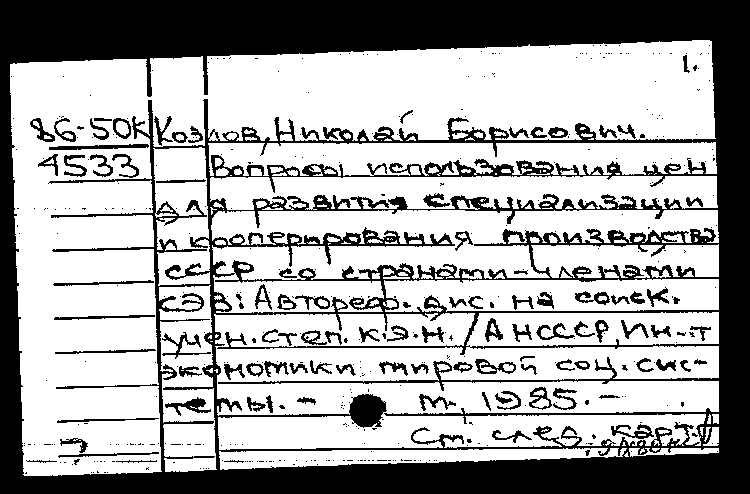 1.
86-50К Козлов, Николай Борисович.
4533 Вопросы использования цен
для развития специализации
и кооперирования производства
СССР со странами-членами
СЭВ: Автореф. дис. на соиск.
учен. степ. к.э.н. / АН СССР, Ин-т
экономики мировой соц. сис-
темы. - М., 1985. -
См. след. карт.